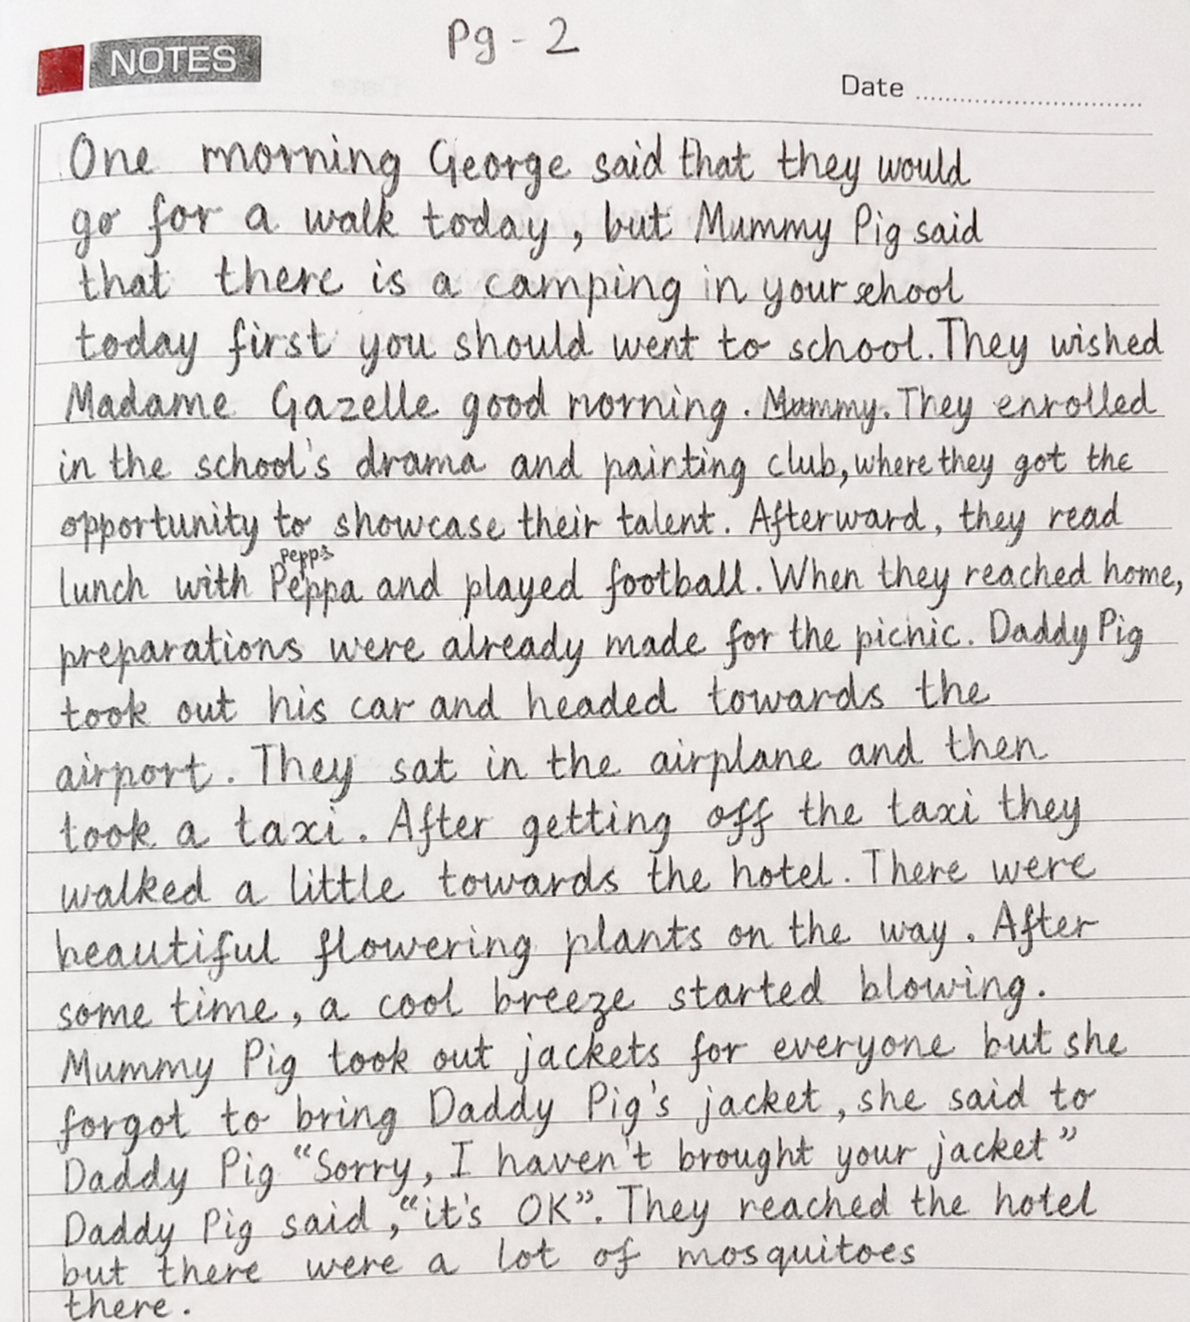 Pg - 2
NOTES
Date
One morning George said that they would
go for a walk today, but Mummy Pig said
that there is a camping in your school
today first you should went to school. They wished
Madame Gazelle good morning. Mummy. They enrolled
in the school's drama and painting club, where they got the
opportunity to showcase their talent. Afterward, they read
Pepps
lunch with Peppa and played football. When they reached home,
preparations were already made for the picnic. Daddy Pig
took out his car and headed towards the
airport. They sat in the airplane and then
took a taxi. After getting off the taxi they
walked a little towards the hotel. There were
beautiful flowering plants on the way. After
some time, a cool breeze started blowing.
Mummy Pig took out jackets for everyone but she
forgot to bring Daddy Pig's jacket, she said to
Daddy Pig "Sorry, I haven't brought your jacket"
Daddy Pig said, "it's OK". They reached the hotel
but there were a lot of mosquitoes
there.